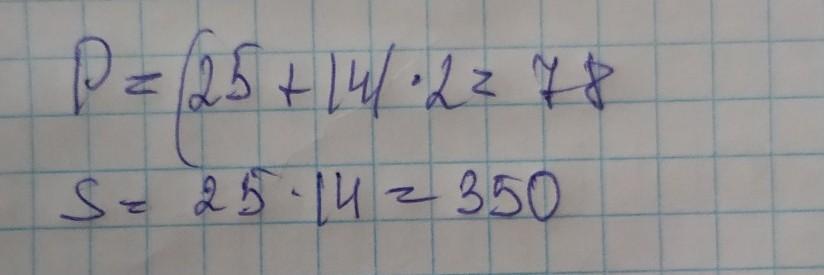 P = (25 + 14) · 2 = 78
S = 25 · 14 = 350